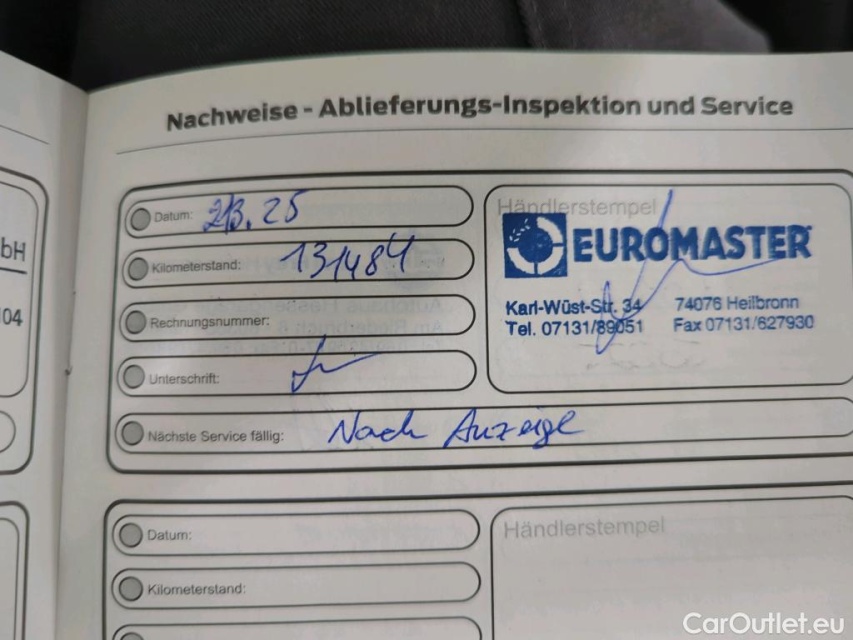 Nachweise - Ablieferungs-Inspektion und Service
bH
04
Datum: 2/3.25
Kilometerstand: 131484
Rechnungsnummer:
Unterschrift:
Nächste Service fällig: Nach Anzeige
Händlerstempel
EUROMASTER
Karl-Wüst-Str. 34 74076 Heilbronn
Tel. 07131/89051 Fax 07131/627930
Datum:
Kilometerstand:
Händlerstempel
CarOutlet.eu